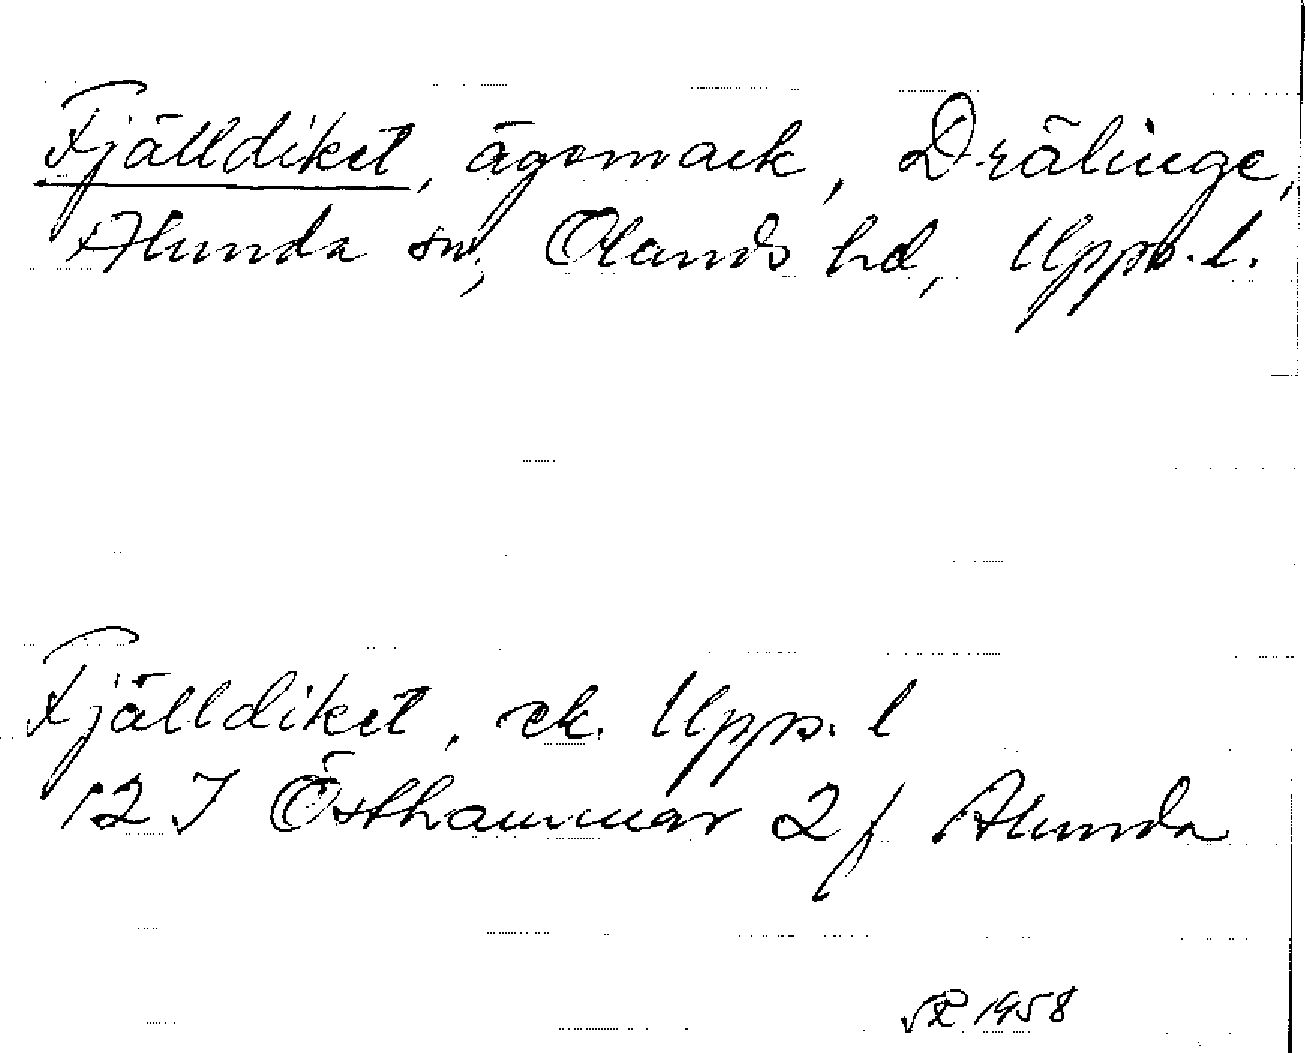 Fjälldiket, ägomark, Drälinge,
Alunda sn, Olands hd, Upps. l.
Fjälldiket, ek. Upps. l
12 I Östhammar 2 f Alunda
1958